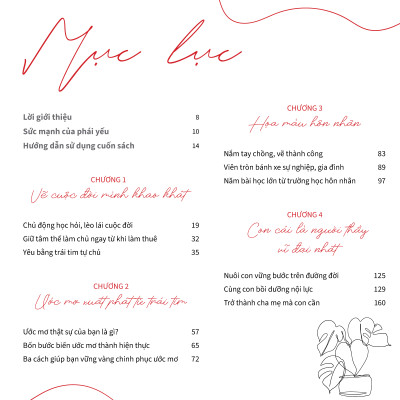 Mục lục
Lời giới thiệu 8
Sức mạnh của phái yếu 10
Hướng dẫn sử dụng cuốn sách 14
CHƯƠNG 1
Vẽ cuộc đời mình khao khát
Chủ động học hỏi, lèo lái cuộc đời 19
Giữ tâm thế làm chủ ngay từ khi làm thuê 32
Yêu bằng trái tim tự chủ 35
CHƯƠNG 2
Ước mơ xuất phát từ trái tim
Ước mơ thật sự của bạn là gì? 57
Bốn bước biến ước mơ thành hiện thực 65
Ba cách giúp bạn vững vàng chinh phục ước mơ 72
CHƯƠNG 3
Họa màu hôn nhân
Nắm tay chồng, vẽ thành công 83
Viên tròn bánh xe sự nghiệp, gia đình 89
Năm bài học lớn từ trường học hôn nhân 97
CHƯƠNG 4
Con cái là người thầy
vĩ đại nhất
Nuôi con vững bước trên đường đời 125
Cùng con bồi dưỡng nội lực 129
Trở thành cha mẹ mà con cần 160